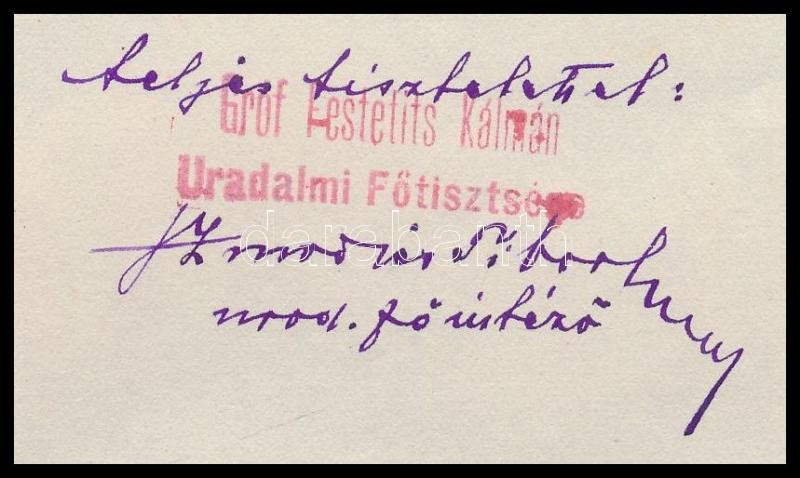 teljes tisztelettel:
Gróf Festetits Kálmán
Uradalmi Főtisztsége
darabanth
Tibor
urad. főintéző